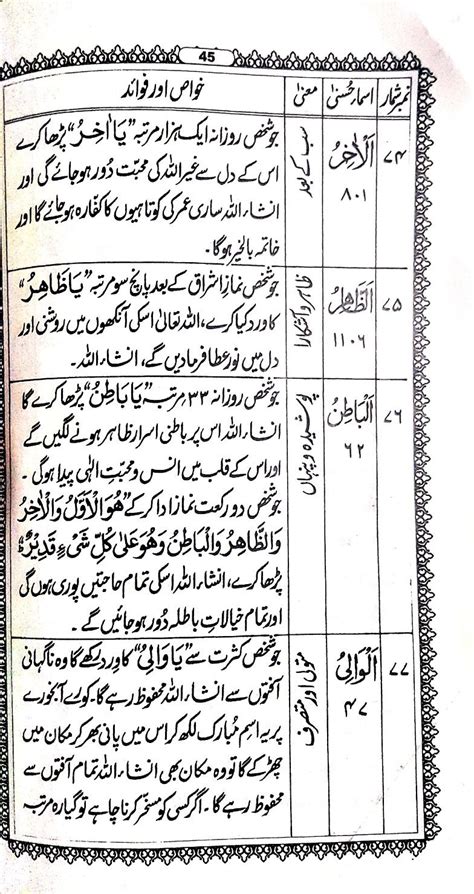 45
نمبر شمار اسماء حُسنیٰ معنیٰ خواص اور فوائد
۷۴ اَلْاٰخِرُ ۸۰۱ سب کے بعد
جو شخص روزانہ ایک ہزار مرتبہ ”یَا اٰخِرُ“ پڑھا کرے
اس کے دل سے غیر اللہ کی محبت دُور ہو جائے گی اور
انشاء اللہ ساری عمر کی کوتاہیوں کا کفارہ ہو جائے گا اور
خاتمہ بالخیر ہو گا۔
۷۵ اَلظَّاهِرُ ۱۱۰۶ ظاہر و آشکارا
جو شخص نمازِ اشراق کے بعد پانچ سو مرتبہ ”یَا ظَاهِرُ“
کا ورد کیا کرے، اللہ تعالیٰ اسکی آنکھوں میں روشنی اور
دل میں نور عطا فرما دیں گے، انشاء اللہ۔
۷۶ اَلْبَاطِنُ ۶۲ پوشیدہ و پنہاں
جو شخص روزانہ ۳۳ مرتبہ ”یَا بَاطِنُ“ پڑھا کرے گا
انشاء اللہ اس پر باطنی اسرار ظاہر ہونے لگیں گے
اور اس کے قلب میں انس و محبتِ الٰہی پیدا ہو گی۔
جو شخص دو رکعت نماز ادا کر کے ”هُوَ الْاَوَّلُ وَالْاٰخِرُ
وَالظَّاهِرُ وَالْبَاطِنُ وَهُوَ عَلٰی كُلِّ شَیْءٍ قَدِیْرٌ“
پڑھا کرے، انشاء اللہ اسکی تمام حاجتیں پوری ہوں گی
اور تمام خیالاتِ باطلہ دُور ہو جائیں گے۔
۷۷ اَلْوَالِیُ ۴۷ متولی اور متصرف
جو شخص کثرت سے ”یَا وَالِیُ“ کا ورد رکھے گا وہ ناگہانی
آفتوں سے انشاء اللہ محفوظ رہے گا۔ کورے آبخورے
پر یہ اسم مُبارک لکھ کر اس میں پانی بھر کر مکان میں
چھڑکے گا تو وہ مکان بھی انشاء اللہ تمام آفتوں سے
محفوظ رہے گا۔ اگر کسی کو مسخر کرنا چاہے تو گیارہ مرتبہ